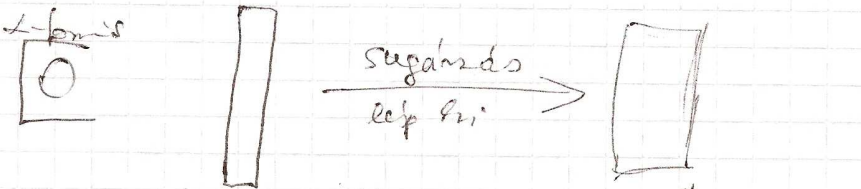 α-forrás
sugárzás
lép ki